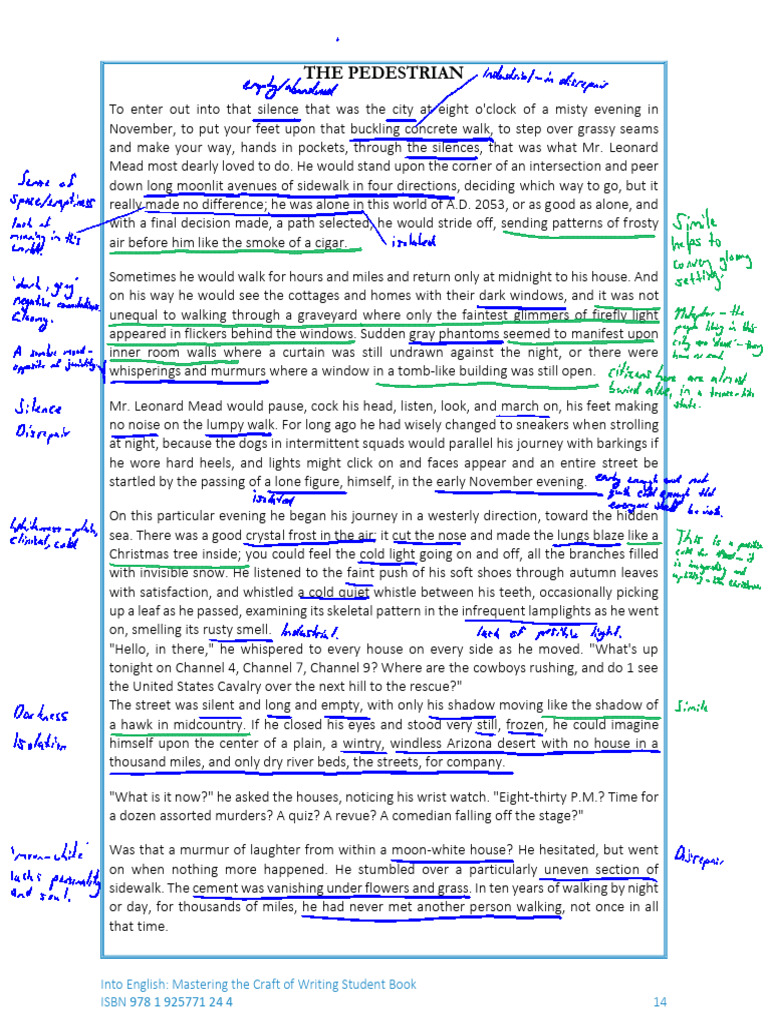 THE PEDESTRIAN
empty/abandoned
Industrial - in disrepair
To enter out into that silence that was the city at eight o'clock of a misty evening in
November, to put your feet upon that buckling concrete walk, to step over grassy seams
and make your way, hands in pockets, through the silences, that was what Mr. Leonard
Mead most dearly loved to do. He would stand upon the corner of an intersection and peer
down long moonlit avenues of sidewalk in four directions, deciding which way to go, but it
really made no difference; he was alone in this world of A.D. 2053, or as good as alone, and
with a final decision made, a path selected, he would stride off, sending patterns of frosty
air before him like the smoke of a cigar.
Sense of
space/emptiness
lack of
meaning in this
world.
isolated
Simile
helps to
convey gloomy
setting.
Sometimes he would walk for hours and miles and return only at midnight to his house. And
on his way he would see the cottages and homes with their dark windows, and it was not
unequal to walking through a graveyard where only the faintest glimmers of firefly light
appeared in flickers behind the windows. Sudden gray phantoms seemed to manifest upon
inner room walls where a curtain was still undrawn against the night, or there were
whisperings and murmurs where a window in a tomb-like building was still open.
'dark, gray'
negative connotations
gloomy.
A sombre mood -
opposite of
Metaphor - the
people living in this
city are 'dead' - they
have no soul
citizens here are almost
buried alive, in a trance-like
state.
Mr. Leonard Mead would pause, cock his head, listen, look, and march on, his feet making
no noise on the lumpy walk. For long ago he had wisely changed to sneakers when strolling
at night, because the dogs in intermittent squads would parallel his journey with barkings if
he wore hard heels, and lights might click on and faces appear and an entire street be
startled by the passing of a lone figure, himself, in the early November evening.
Silence
Disrepair
isolated
early enough and not
cold enough that
everyone should be inside.
On this particular evening he began his journey in a westerly direction, toward the hidden
sea. There was a good crystal frost in the air; it cut the nose and made the lungs blaze like a
Christmas tree inside; you could feel the cold light going on and off, all the branches filled
with invisible snow. He listened to the faint push of his soft shoes through autumn leaves
with satisfaction, and whistled a cold quiet whistle between his teeth, occasionally picking
up a leaf as he passed, examining its skeletal pattern in the infrequent lamplights as he went
on, smelling its rusty smell.
Whiteness - pale,
clinical, cold
This is a positive
cold for Mead - it
is invigorating and
uplifting - like christmas
Industrial.
lack of positive light.
"Hello, in there," he whispered to every house on every side as he moved. "What's up
tonight on Channel 4, Channel 7, Channel 9? Where are the cowboys rushing, and do 1 see
the United States Cavalry over the next hill to the rescue?"
The street was silent and long and empty, with only his shadow moving like the shadow of
a hawk in midcountry. If he closed his eyes and stood very still, frozen, he could imagine
himself upon the center of a plain, a wintry, windless Arizona desert with no house in a
thousand miles, and only dry river beds, the streets, for company.
Darkness
Isolation
Simile
"What is it now?" he asked the houses, noticing his wrist watch. "Eight-thirty P.M.? Time for
a dozen assorted murders? A quiz? A revue? A comedian falling off the stage?"
Was that a murmur of laughter from within a moon-white house? He hesitated, but went
on when nothing more happened. He stumbled over a particularly uneven section of
sidewalk. The cement was vanishing under flowers and grass. In ten years of walking by night
or day, for thousands of miles, he had never met another person walking, not once in all
that time.
'moon-white'
lacks personality
and soul.
Disrepair
Into English: Mastering the Craft of Writing Student Book
ISBN 978 1 925771 24 4
14